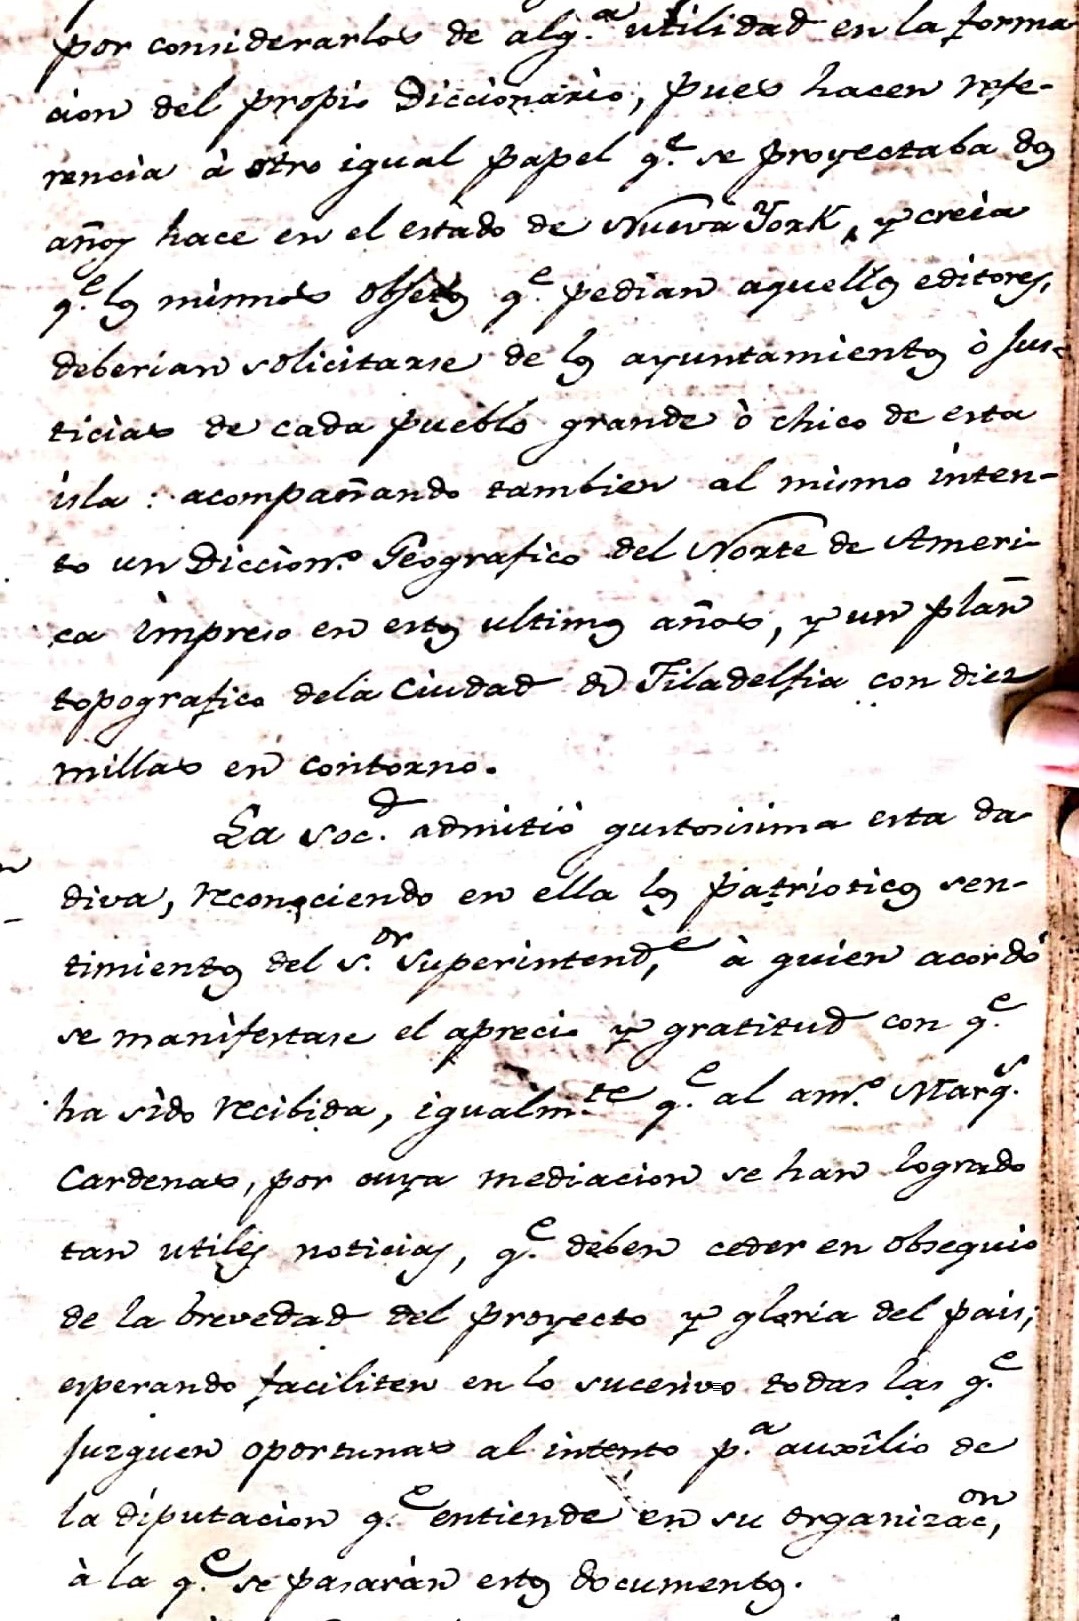 por considerarlos de alg.ª utilidad en la forma
cion del propio Diccionario, pues hacen refe-
rencia à otro igual papel q.e se proyectaba dos
años hace en el estado de Nueva York, y creia
q.e los mismos obsetos q.e pedian aquellos editores,
deberian solicitarse de los ayuntamientos ò Jus-
ticias de cada pueblo grande ò chico de esta
isla : acompañando tambien al mismo inten-
to un Diccion.º Geografico del Norte de Ameri-
ca impreso en estos ultimos años, y un plan
topografico dela Ciudad de Filadelfia con diez
millas en contorno.
La Soc.d admitió gustosisima esta da
diva, reconociendo en ella los patrioticos sen-
timientos del S.or Superintend,e à quien acordó
se manifestase el aprecio y gratitud con q.e
ha sido recibida, igualm.te q.e al am.º Marq.s
Cardenas, por cuya mediacion se han logrado
tan utiles noticias, q.e deben ceder en obsequio
de la brevedad del proyecto y gloria del pais,
esperando faciliten en lo sucesivo todas las q.e
Juzguen oportunas al intento p.a auxîlio de
la diputacion q.e entiende en su organizac,on
à la q.e se pasaràn estos documentos.